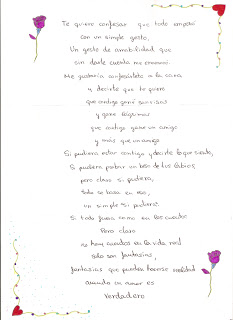 Te quiero confesar que todo empezó
con un simple gesto,
Un gesto de amabilidad que
sin darte cuenta me enamoró.
Me gustaría confesártelo a la cara
y decirte que te quiero
que contigo gané sonrisas
y gané lágrimas
que contigo gané un amigo
y más que un amigo
Si pudiera estar contigo y decirte lo que siento,
Si pudiera probar un beso de tus labios,
pero claro si pudiera,
todo se basa en eso,
un simple "si pudiera".
Si todo fuera como en los cuentos
Pero claro
no hay cuentos en la vida real
solo son fantasías,
fantasías que pueden hacerse realidad
cuando un amor es
Verdadero